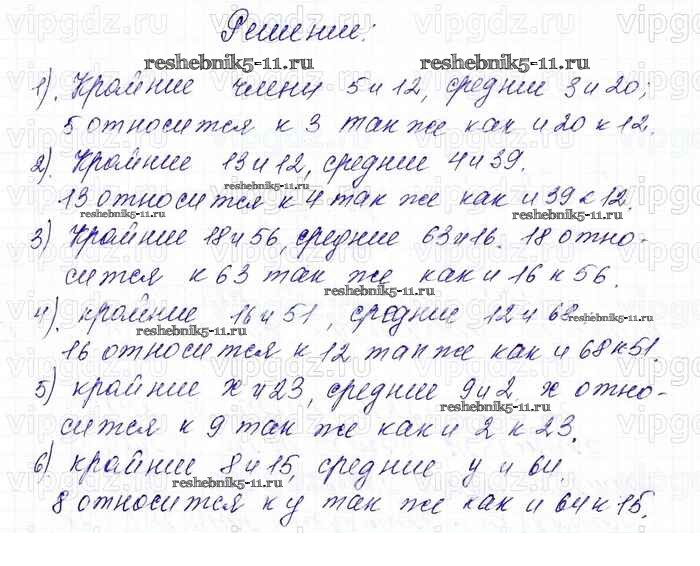 Решение:
1). Крайние члены 5 и 12, средние 3 и 20;
5 относится к 3 так же как и 20 к 12.
2). Крайние 13 и 12, средние 4 и 39.
13 относится к 4 так же как и 39 к 12.
3) Крайние 18 и 56, средние 63 и 16. 18 отно-
сится к 63 так же как и 16 к 56.
4). крайние 16 и 51, средние 12 и 68
16 относится к 12 так же как и 68 к 51.
5) крайние x и 23, средние 9 и 2. x отно-
сится к 9 так же как и 2 к 23.
6) крайние 8 и 15, средние y и 64
8 относится к y так же как и 64 к 15.
reshebnik5-11.ru
reshebnik5-11.ru
reshebnik5-11.ru
reshebnik5-11.ru
reshebnik5-11.ru
reshebnik5-11.ru
reshebnik5-11.ru
reshebnik5-11.ru
reshebnik5-11.ru
reshebnik5-11.ru